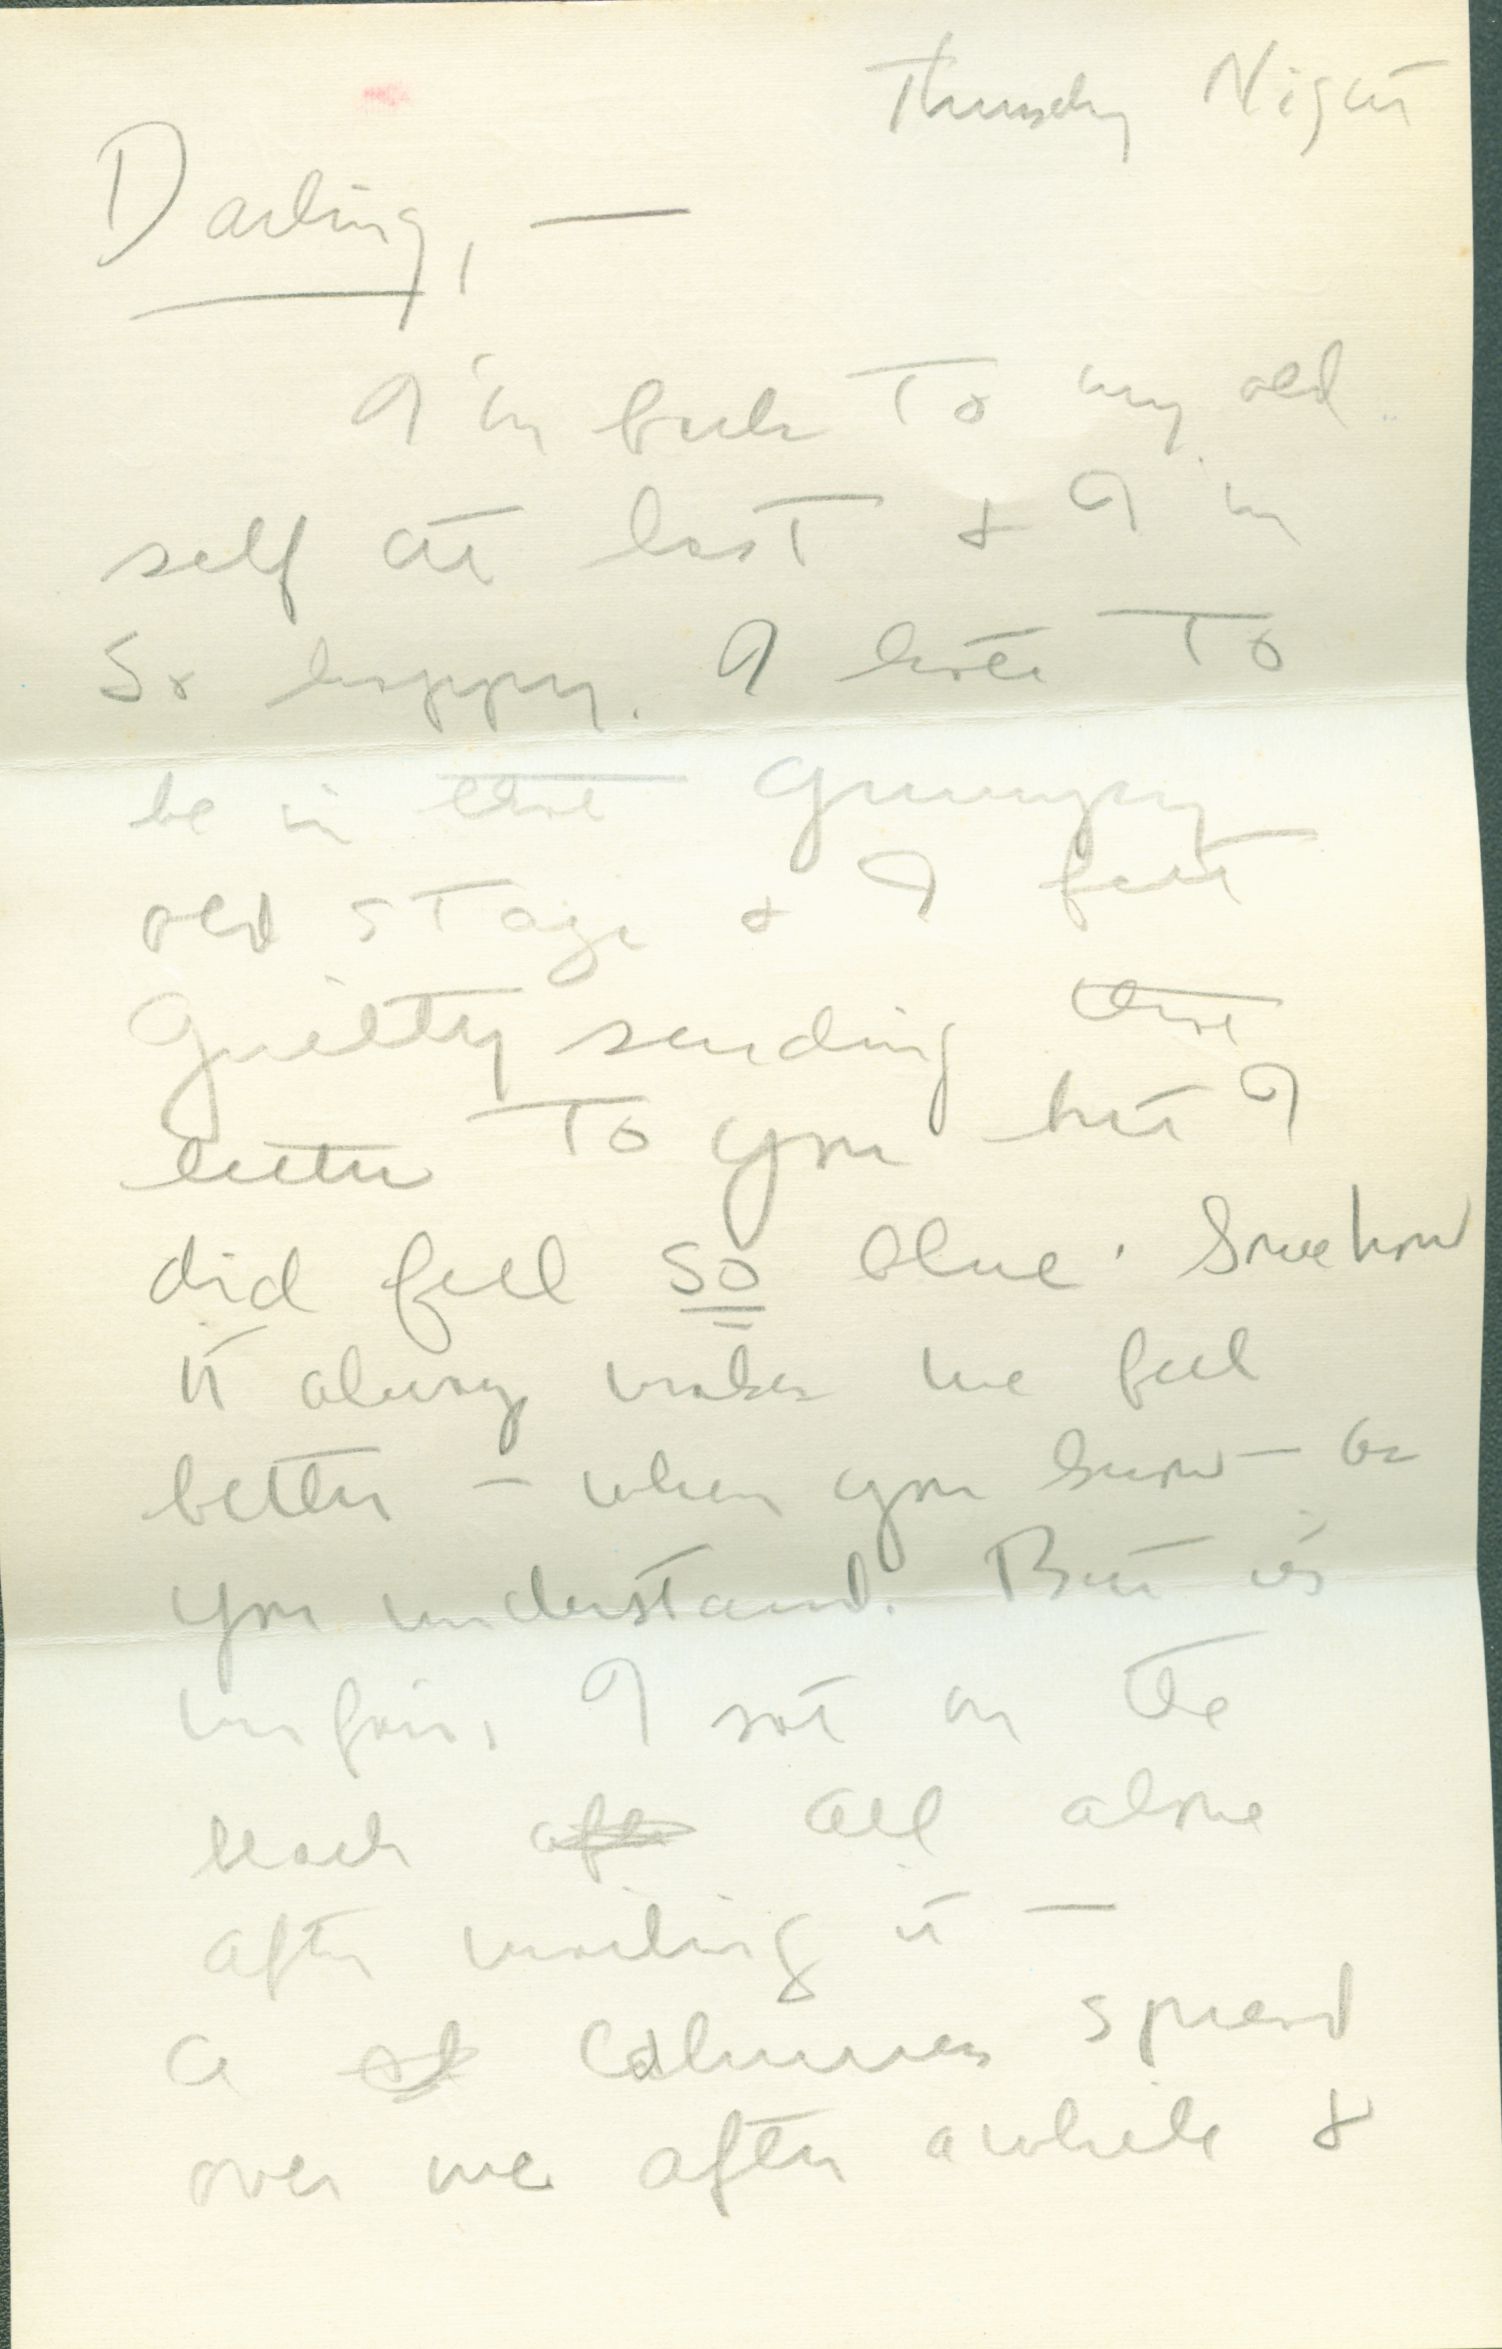 Thursday Night
Darling, —
I'm back to my old
self at last & I'm
so happy. I hate to
be in that grumpy
old stage & I felt
guilty sending that
letter to you but I
did feel so blue. Somehow
it always makes me feel
better — when you know — as
you understand. But it's
unfair. I sat on the
beach aft all alone
after mailing it —
a calmness spread
over me after awhile &